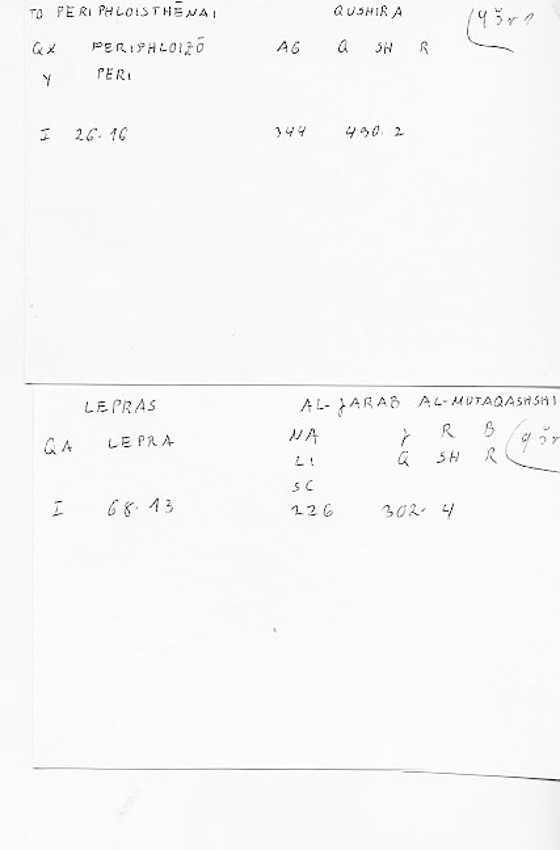 TO PERIPHLOISTHĒNAI QUSHIRA (qšr 1
QX PERIPHLOIZŌ AG Q SH R
Y PERI
I 26.16 344 490.2
LEPRAS AL-JARAB AL-MUTAQASHSHI
QA LEPRA NA J R B (qšr
LI Q SH R
SC
I 68.13 226 302.4